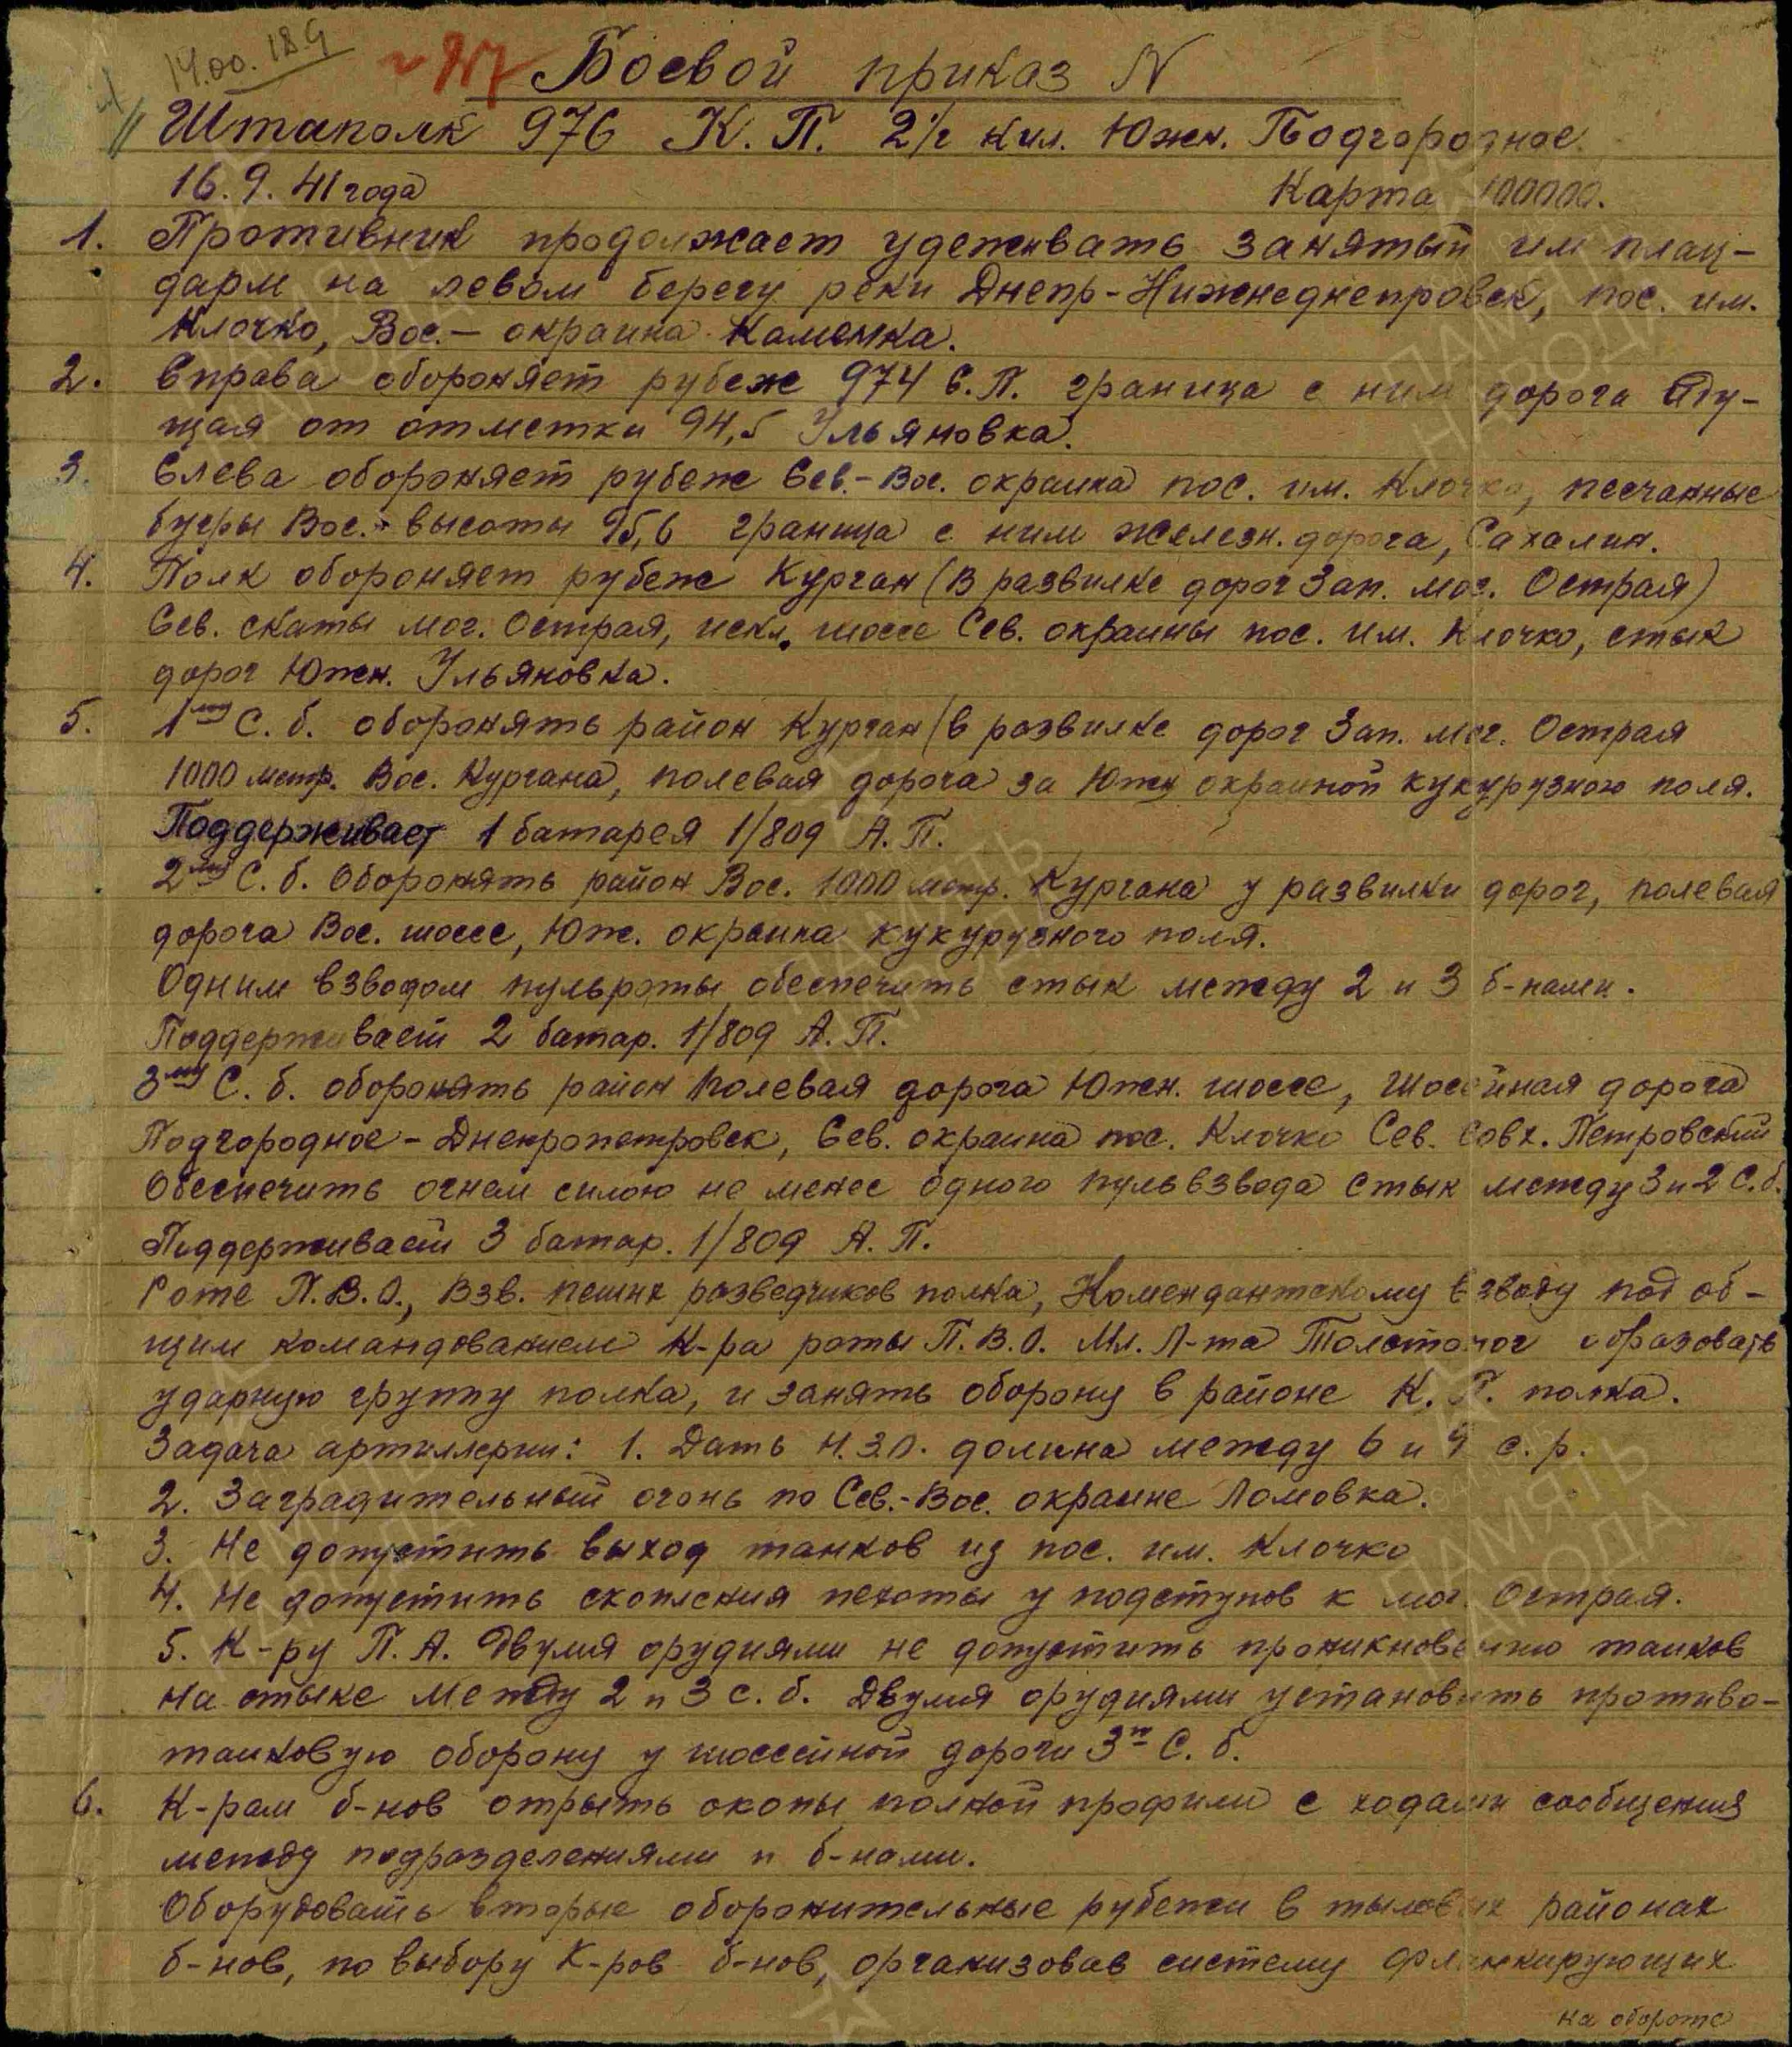 14.00. 18.9
Боевой приказ N
Штаполк 976 К. П. 2½ кил. Южн. Подгородное.
16.9.41 года Карта 100000.
1. Противник продолжает удеживать занятый им плац-
дарм на левом берегу реки Днепр-Нижнеднепровск, пос. им.
Клочко, Вос. – окраина Каменка.
2. Справа обороняет рубеж 974 С.П. граница с ним дорога Иду-
щая от отметки 94,5 Ульяновка.
3. Слева обороняет рубеж Сев.-Вос. окраина пос. им. Клочко, песчанные
бугры Вос. высоты 95,6 граница с ним железн. дорога, Сахалин.
4. Полк обороняет рубеж Курган (В развилке дорог Зап. мог. Острая)
Сев. скаты мог. Острая, искл. шоссе Сев. окраины пос. им. Клочко, стык
дорог Южн. Ульяновка.
5. 1му С. б. оборонять район Курган (в развилке дорог Зап. мог. Острая
1000 метр. Вос. Кургана, полевая дорога за Южн окраиной кукурузного поля.
Поддерживает 1 батарея 1/809 А. П.
2му С. б. Оборонять район Вос. 1000 метр. Кургана у развилки дорог, полевая
дорога Вос. шоссе, Юж. окраина кукурузного поля.
Одним взводом пульроты обеспечить стык между 2 и 3 б-нами.
Поддерживает 2 батар. 1/809 А. П.
3му С. б. оборонять район полевая дорога Южн. шоссе, Шоссейная дорога
Подгородное - Днепропетровск, Сев. окраина пос. Клочко Сев. Совх. Петровский
Обеспечить огнем силою не менее одного пульвзвода стык между 3 и 2 С.б.
Поддерживает 3 батар. 1/809 А. П.
Роте П.В.О., Взв. пеших разведчиков полка, Комендантскому взводу под об-
щим командованием К-ра роты П.В.О. Мл. Л-та образовать
ударную группу полка, и занять оборону в районе К. П. полка.
Задача артиллерии: 1. Дать Н.З.О. долина между 6 и 9 с. р.
2. Заградительный огонь по Сев.-Вос. окраине Ломовка.
3. Не допустить выход танков из пос. им. Клочко
4. Не допустить скопления пехоты у подступов к мог. Острая.
5. К-ру П. А. Двумя орудиями не допустить проникновению танков
на стыке между 2 и 3 с. б. Двумя орудиями установить противо-
танковую оборону у шоссейной дороги 3го С. б.
6. К-рам б-нов отрыть окопы полной профили с ходами сообщения
между подразделениями и б-нами.
Оборудовать вторые оборонительные рубежи в тыловых районах
б-нов, по выбору К-ров б-нов, организовав систему фланкирующих
на обороте
ПАМЯТЬ
НАРОДА